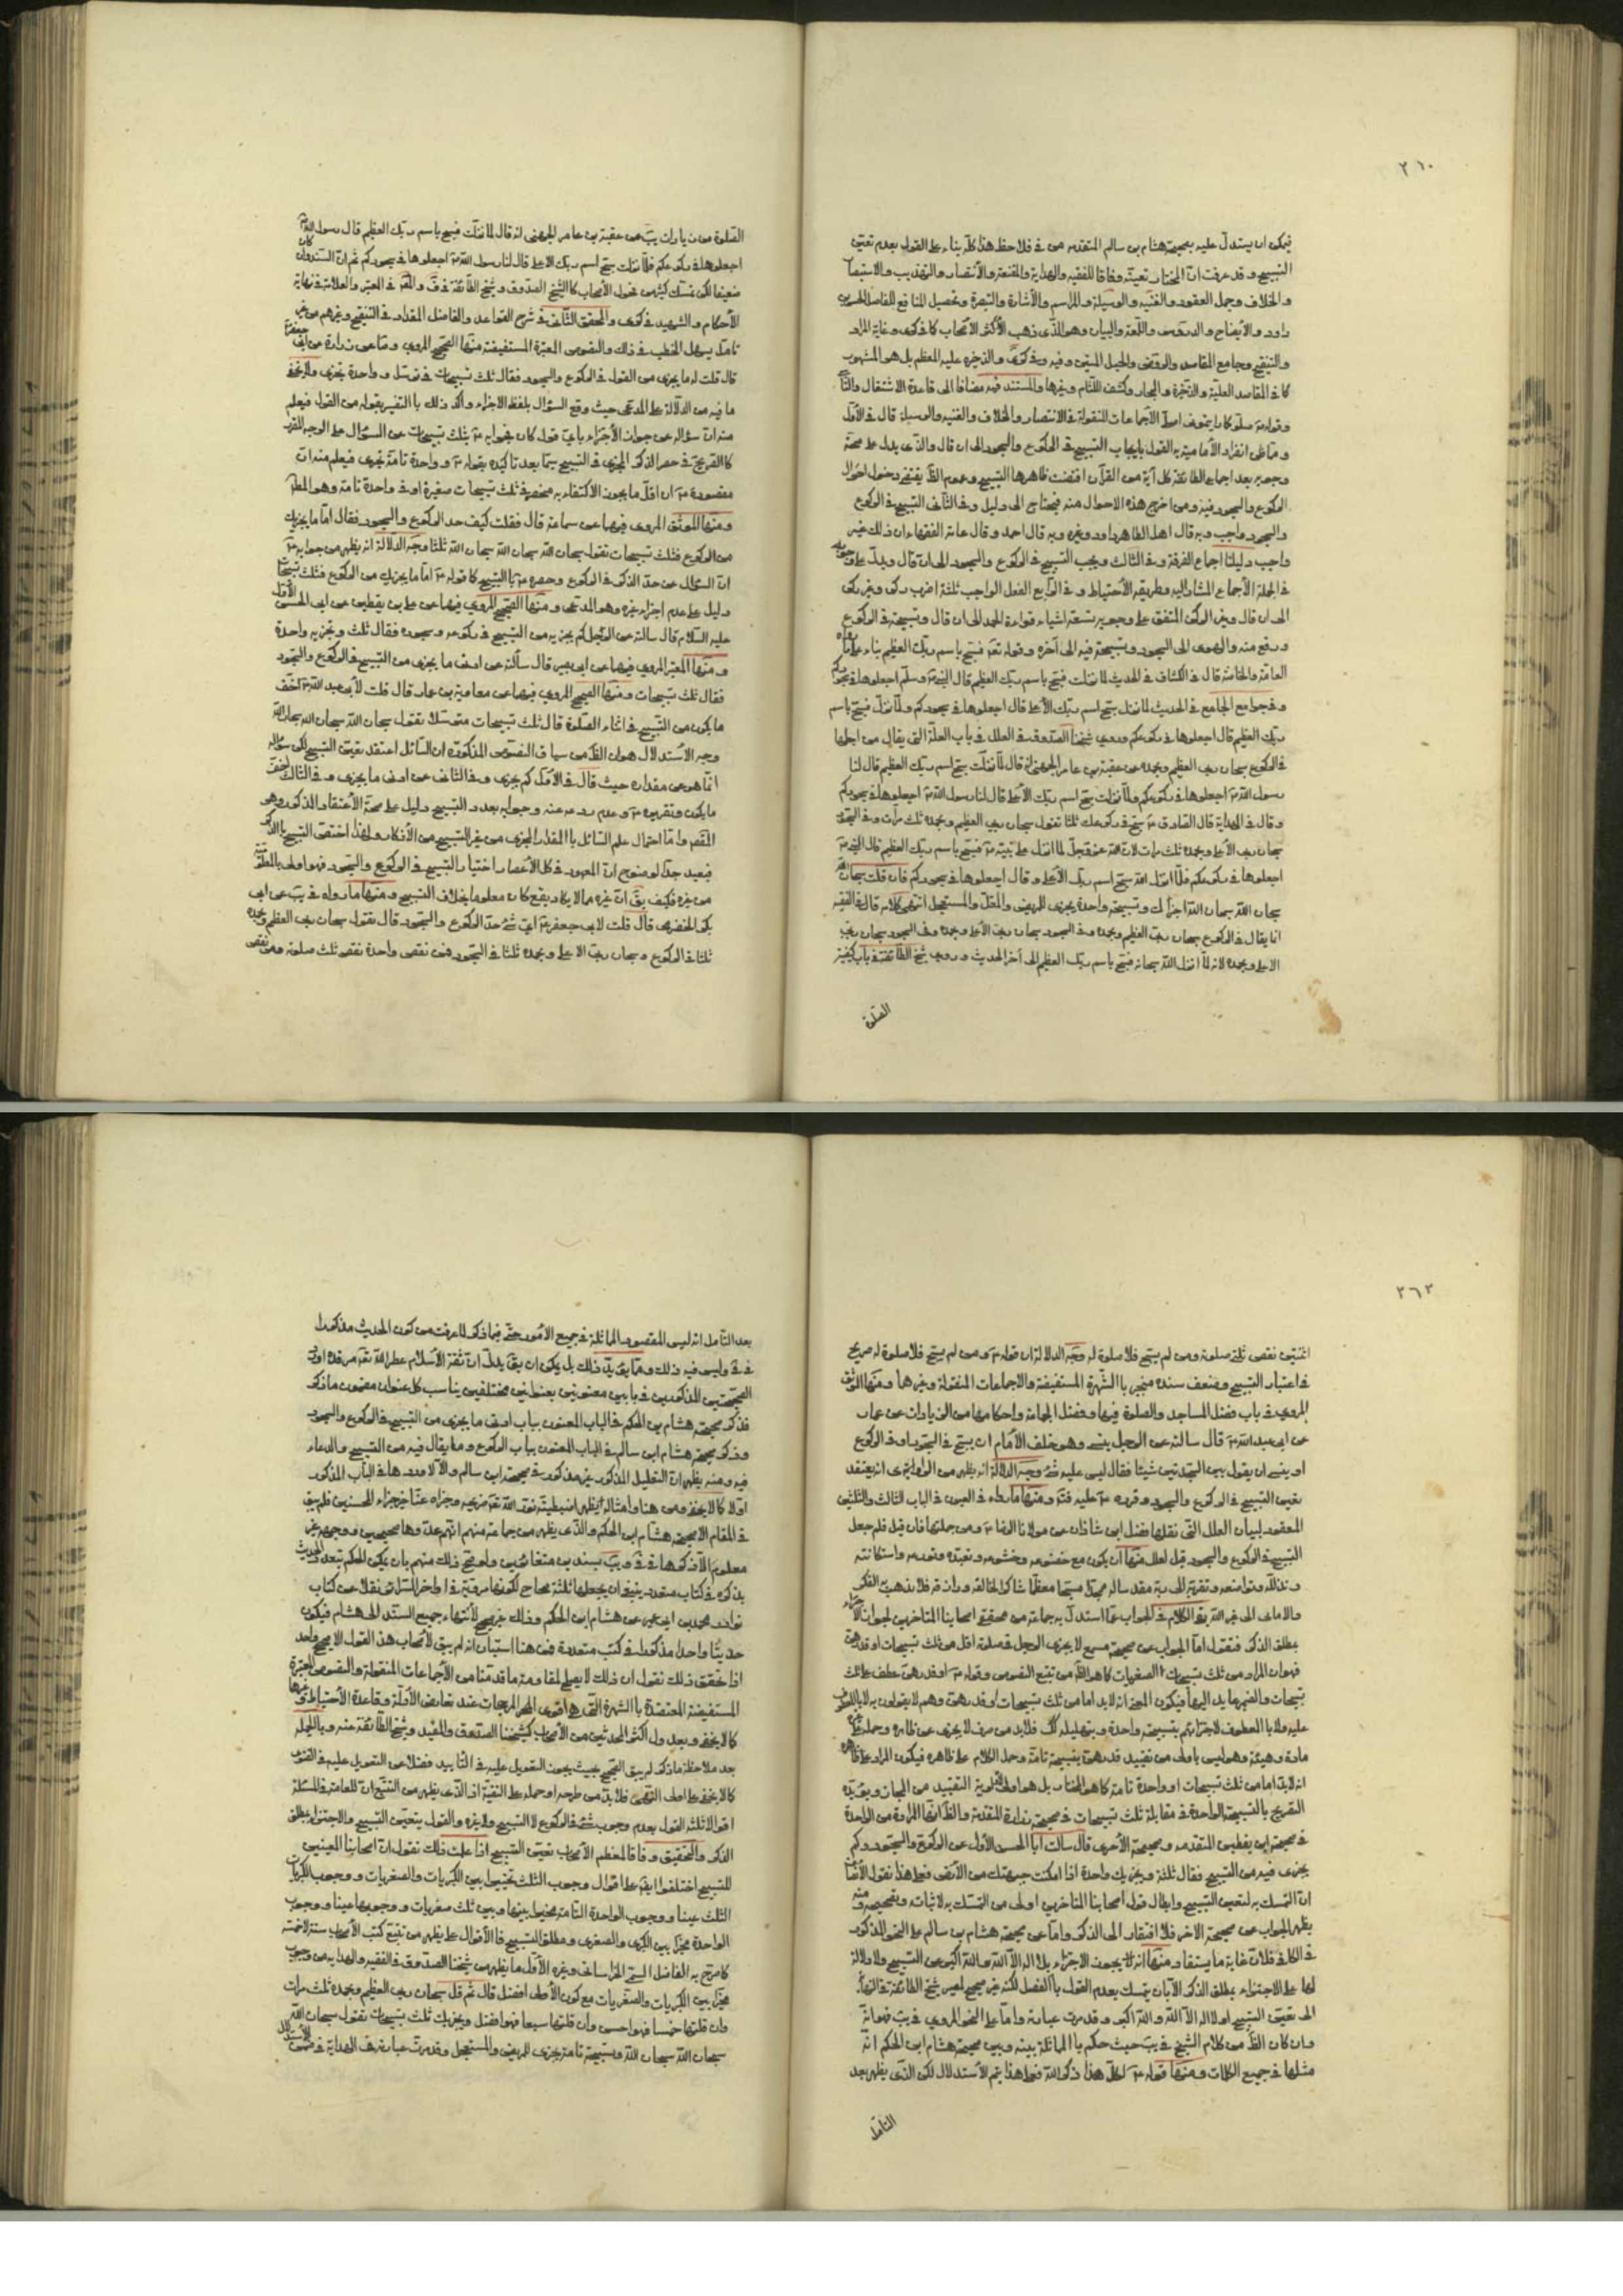 ٢٦٠
فيمكن ان يستدل عليه بصحيحة هشام بن سالم المتقدمه هذا كله بناء على القول بعدم تعيّن
التسبيح و قد عرفت انّ المختار تعينّه وفاقا للفقيه والهداية والمقنعة والأنتصار والتهذيب والاستبصار
والخلاف وجمل العقود والغنيه والوسيلة والمراسم والأشارة والتبصرة وتحصيل المنافع للفاضل
داود والأيضاح والدروس واللمعة والبيان وهو الذّى ذهب الأكثر الأصحاب كما فى كرى وغاية المراد
والتنقيح وجامع المقاصد والروض والحبل المتين وفيه و فى والذخيره عليه المعظم بل هو المشهور
كما فى المقاصد العلية والذخيرة والبحار وكشف اللثام وغيرها والمستند فيه مضافا الى قاعدة الاشتغال
وقوله صلّوا كما رايتمونى اصلّى الأجماعات المنقولة فى الانتصار والخلاف والغنيه والوسيلة قال فى الأوّل
وممّا ظن انفراد الأماميه به القول بايجاب التسبيح فى الركوع والسجود الى ان قال والذّى يدل على صحّة
وجوبه بعد اجماع الطائفة كل آية من القرآن اقتضت ظاهرها التسبيح وعموم الظ يقتضى دخول احوال
الركوع والسجود فيه ومن اخرج هذه الاحوال منه فيحتاج الى دليل وفى الثّانى التسبيح فى الركوع
والسجود واجب وبه قال اهل الظاهر داود وغيره وبه قال احمد وقال عامة الفقهاء ان ذلك غير
واجب دليلنا اجماع الفرقة وفى الثالث ويجب التسبيح فى الركوع والسجود الى ان قال ويدلّ على
فى الجملة الأجماع المشار اليه وطريقه الأحتياط و فى الرابع الفعل الواجب ثلثة اضرب ركن وغير ركن
الى ان قال وغير الركن المتفق على وجوبه تسعة اشياء قراءة الحمد الى ان قال وتسبيحة فى الركوع
ورفع منه والهوى الى السجود وتسبيحة فيه الى آخره وقوله تعه فسبح باسم ربك العظيم بناء على
العامّة والخاصّة قال فى الكشاف فى الحديث لما نزلت فسبح باسم ربك العظيم قال النبى ص وسلّم اجعلوها فى
وفى جوامع الجامع فى الحديث لما نزل سبّح اسم ربّك الأعلى قال اجعلوها فى سجودكم ولمّا نزل فسبح باسم
ربك العظيم قال اجعلوها فى ركوعكم وروى شيخنا الصدوق فى العلل فى باب العلّة التى يقال من اجلها
فى الركوع سبحان ربى العظيم وبحمده عن عقبة بن عامر الجهنى انّه قال لمّا نزلت سبّح اسم ربك العظيم قال لنا
رسول اللّه ص اجعلوها فى ركوعكم ولمّا نزلت سبح اسم ربّك الأعلى قال لنا رسول اللّه ص اجعلوها فى سجودكم
وقال فى الهداية قال الصادق ع سبّح فى ركوعك ثلثا تقول سبحان ربى العظيم وبحمده ثلث مرات وفى السجود
سبحان ربى الأعلى وبحمده ثلث مرات لانّ اللّه عزّ وجلّ لما انزل على نبيه ص فسبّح باسم ربك العظيم قال النبى ص
اجعلوها فى ركوعكم فلمّا انزل اللّه سبّح اسم ربك الأعلى قال اجعلوها فى سجودكم فان قلت سبحان اللّه
سبحان اللّه سبحان اللّه اجزاك وتسبيحة واحدة يجزى للمريض والمقلّ والمستعجل انتهى كلامه قال فى الفقيه
انما يقال فى الركوع سبحان ربى العظيم وبحمده وفى السجود سبحان ربى الأعلى وبحمده
الاعلى وبحمده لانه لمّا انزل اللّه سبحانه فسبّح باسم ربك العظيم الى آخر الحديث وروى شيخ الطائفة فى باب كيفيّة
الصّلوة
الصّلوة من زيادات يبَ عن عقبة بن عامر الجهنى انه قال لما نزلت فسبح باسم ربّك العظيم قال رسول اللّه ص
اجعلوها فى ركوعكم فلمّا نزلت سبّح اسم ربك الاعلى قال لنا رسول اللّه ص اجعلوها فى سجودكم ثم انّ السّند وان كان
ضعيفا لكن تمسّك كثير من فحول الأصحاب كالشيخ الصّدوق وشيخ الطائفة فى ق والمحقّق فى المعتبر والعلامة فى نهاية
الأحكام والشهيد فى كرى والمحقق الثّانى فى شرح القواعد والفاضل المقداد فى التنقيح وغيرهم من غير
تامّل يسهل الخطب فى ذلك والنصوص المعتبرة المستفيضة منها الصّحيح المروى عن زرارة عن ابى جعفر ع
قال قلت له ما يجزى من القول فى الركوع والسجود فقال ثلث تسبيحات فى ترسّل وواحدة تامّة يجزى ولا يخفى
ما فيه من الدّلالة على المدعى حيث وقع السؤال بلفظ الاجزاء واكد ذلك بالتفسير بقوله من القول فيعلم
منه انّ سؤاله عن جواز الأجزاء بايّ قول كان فجوابه ع بثلث تسبيحات عن السؤال على الوجه المقرر
كالتصريح فى حصر الذكر المجزى فى التسبيح سيّما بعد تاكيده بقوله ع وواحدة تامّة يجزى فيعلم منه ان
مقصوده ع ان اقلّ ما يجوز الاكتفاء به منحصر فى ثلث تسبيحات صغيرة او فى واحدة تامة وهو المطلوب
ومنها الموثق المروى فيهما عن سماعة قال فقلت كيف حد الركوع والسجود فقال امّا ما يجزيك
من الركوع فثلث تسبيحات تقول سبحان اللّه سبحان اللّه سبحان اللّه ثلثا وجه الدلالة انه يظهر من جوابه ع
انّ السؤال عن حدّ الذكر فى الركوع وحصره ع بالتسبيح كما قوله ع امّا ما يجزيك من الركوع فثلث تسبيحات
دليل على عدم اجزاء غيره وهو المدعى ومنها الصّحيح المروى فيهما عن على بن يقطين عن ابى الحسن الأوّل
عليه السّلام قال سالته عن الرّجل كم يجزيه من التسبيح فى ركوعه وسجوده فقال ثلث وتجزيه واحدة
ومنها المعتبر المروى فيهما عن ابى بصير قال سألته عن ادنى ما يجزى من التسبيح فى الركوع والسّجود
فقال ثلث تسبيحات ومنها الصحيح المروى فيهما عن معاوية بن عمار قال قلت لأبى عبد اللّه ع اخفّ
ما يكون من التّسبيح فى اثناء الصّلوة قال ثلث تسبيحات مترسّلا تقول سبحان اللّه سبحان اللّه سبحان اللّه
وجه الأستدلال هو ان الظ من سياق النّصوص المذكورة ان السّائل اعتقد تعيّن التسبيح لكن سؤاله
انّما هو عن مقداره حيث قال فى الأوّل كم يجزى وفى الثانى عن ادنى ما يجزى و فى الثالث اخفّ
ما يكون وتقريره ع وعدم ردعه عنه وجوابه بعدد التسبيح دليل على صحّة الأعتقاد المذكور وهو
المقصود وامّا احتمال علم السّائل بالمقدار المجزى من غير التّسبيح من الأذكار ولهذا اختصّ التسبيح بالذكر
فبعيد جدا لوضوح انّ المعهود فى كل الأعصار اختيار التسبيح فى الركوع والسجود فهو اولى بالمعلوميّة
من غيره فكيف يق انّ غيره مما لا يكاد يقع كان معلوما بخلاف التسبيح ومنها ما رواه فى يبَ عن ابى
بكر الحضرمى قال قلت لابى جعفر ع ايّ شئ حدّ الركوع والسّجود قال تقول سبحان ربى العظيم وبحمده
ثلثا فى الركوع وسبحان ربى الاعلى وبحمده ثلثا فى السّجود فمن نقص واحدة نقص ثلث صلوته ومن نقص
٢٦٣
اثنتين نقص ثلثى صلوته ومن لم يسبّح فلا صلوة له وجه الدلالة ان قوله ع ومن لم يسبّح فلا صلوة له صريح
فى اعتبار التسبيح وضعف سنده منجبر بالشّهرة المستفيضة والاجماعات المنقولة وغيرها ومنها الموثق
المروى فى باب فضل المساجد والصلوة فيها وفضل الجماعة واحكامها من الزيادات عن عمار
عن ابى عبد اللّه ع قال سالته عن الرجل ينسى وهو خلف الأمام ان يسبّح فى السّجود او فى الركوع
او ينسى ان يقول بين السّجدتين شيئا فقال ليس عليه شئ وجه الدلالة انه يظهر من الراوى انه يعتقد
تعيين التسبيح فى الركوع والسجود وقرره ع عليه فتم ومنها ما رواه فى العيون فى الباب الثالث والثلثين
المعقود لبيان العلل التى نقلها فضل ابن شاذان عن مولانا الرضا ع ومن جملتها فان قيل فلم جعل
التسبيح فى الركوع والسجود قيل لعلل منها ان يكون مع خضوعه وخشوعه وتعبّده وتورعه واستكانته
وتذلّله وتواضعه وتقرّبه الى ربه مقدسا له ممجدا مسبّحا معظما شاكرا لخالقه ورازقه فلا يذهب به الفكر
والامانى الى غير اللّه بقى الكلام فى الجواب عمّا استدلّ به جماعة من محققى اصحابنا المتاخرين لجواز الأجزاء
بمطلق الذكر فنقول امّا الجواب عن صحيحة مسمع لا يجزى الرجل فى صلوته اقل من ثلث تسبيحات او قدرهنّ
فهو ان المراد من ثلث تسبيحات الصّغريات كما هو الظ من تتبع النصوص وقوله ع او قدرهنّ عطف على ثلث
تسبيحات والضمير عايد اليها فيكون المعنى انه لابد اما من ثلث تسبيحات او قدرهن وهم لا يقولون به لا بالمعطوف
عليه ولا بالمعطوف لاجتزائهم بتسبيحة واحدة وبتهليلة كك فلابد من صرف لا يجزى عن ظاهره وحمله على
مادة وهيئة وهو ليس باولى من تقييد قدرهنّ بتسبيحة تامّة وحمل الكلام على ظاهره فيكون المراد
انه لابد اما من ثلث تسبيحات او واحدة تامة كما هو المختار بل هو اولى لاولوية التقييد من المجاز ويؤيّده
التصريح بالتسبيحة الواحدة فى مقابلة ثلث تسبيحات فى صحيحة زرارة المتقدمة والظ انها المراد من الواحدة
فى صحيحة ابن يقطين المتقدمه وصحيحة الأخرى قال سالت ابا الحسن الأوّل عن الركوع والسجود وكم
يجزى فيه من التسبيح فقال ثلثة ويجزيك واحدة اذا امكنت جبهتك من الأرض فعلى هذا نقول الأنصاف
انّ التمسك به لتعيين التسبيح وابطال قول اصحابنا المتاخرين اولى من التمسّك به لاثباته وتصحيحه ومنه
يظهر الجواب عن صحيحة الاخر فلا افتقار الى الذكر وامّا عن صحيحة هشام بن سالم على النحو المذكور
فى الكافى فلانّ غاية ما يستفاد منها انه يجوز الاجتزاء بلا اله الّا اللّه واللّه اكبر عن التسبيح ولا دلالة
لها على الاجتزاء بمطلق الذكر الّا بان يتمسك بعدم القول بالفصل لكنّه غير صحيح لمصير شيخ الطائفة فى النهاية
الى تعيين التسبيح او لا اله الّا اللّه واللّه اكبر وقد مرت عبارته وامّا على النحو المروى فى يبَ فهو انّه
وان كان الظ من كلام الشيخ فى يبَ حيث حكم بالمماثلة بينه وبين صحيحة هشام ابن الحكم انّه
مثلها فى جميع الكلمات ومنها قوله ع كل هذا ذكر اللّه فعلى هذا يتم الأستدلال لكن الذّى يظهر بعد
التامّل
بعد التّامل انه ليس المقصود المماثلة فى جميع الأمور حتّى فيما ذكر لما عرفت من كون الحديث مذكورا
فى فى وليس فيه ذلك وممّا يؤيد ذلك بل يمكن ان يق يدلّ انّ ثقة الأسلام عطر اللّه تعه مرقده اورد
الصّحيحتين المذكورتين فى بابين معنونين بعنوانين مختلفين يناسب كل عنوان مضمون ما ذكر
فذكر صحيحة هشام بن الحكم فى الباب المعنون بباب ادنى ما يجزى من التسبيح فى الركوع والسجود
وذكر صحيحة هشام ابن سالم فى الباب المعنون بباب الركوع وما يقال فيه من التسبيح والدعاء
فيه ومنه يظهر انّ التعليل المذكور غير مذكور فى صحيحة ابن سالم والّا لاوردها فى الباب المذكور
اوّلا كما لا يخفى ومن هنا وامثاله يظهر اضبطيته نوّر اللّه تعه ضريحه وجزاه عنّا خير جزاء المحسنين فلم يبق
فى المقام الّا صحيحة هشام ابن الحكم والّذى يظهر من جماعة منهم انّهم عدّوها صحيحتين ووجهه غير
معلوم الّا ذكرها فى فى ويبَ بسندين متغائرين ولو صحّ ذلك منهم بان يكون الحكم بتعدد الحديث
بذكره فى كتاب متعدد ينبغى ان يجعلها ثلثة صحاح لكونها مرويّة فى اواخر السّرائر نقلا عن كتاب
نوادر محمد بن ابى عمير عن هشام ابن الحكم وذلك غير صحيح لأنتهاء جميع السّند الى هشام فيكون
حديثا واحدا مذكورا فى كتب متعددة فمن هنا استبان انه لم يبق لأصحاب هذا القول الا صحيح واحد
اذا تحقق ذلك نقول ان ذلك لا يصلح لمقاومته ما قدمنا من الأجماعات المنقولة والنصوص المعتبرة
المستفيضة المعتضدة بالشهرة التى هى اقوى المرجحات عند تعارض الأدلّة وقاعدة الأحتياط وغيرها
كما لا يخفى وبعدول اكثر المحدثين من الأصحاب كشيخنا الصّدوق والمفيد وشيخ الطّائفة عنه وبالجمله
بعد ملاحظة ما ذكر لم يبق الصّحيح بحيث يجوز التعويل عليه فى التأييد فضلا عن التعويل عليه فى الفتوى
كما لا يخفى على اولى النّهى فلابدّ من طرحه او حمله على التقيّة اذ الّذى يظهر من التتبّع انّ للعامّة فى المسئلة
اقوالا ثلثه القول بعدم وجوب شئ فى الركوع لا التسبيح ولا غيره والقول بتعيين التسبيح والاجتزاء بمطلق
الذكر والتحقيق وفاقا لمعظم الأصحاب تعيّن التسبيح اذا علمت ذلك نقول انّ اصحابنا المعينين
للتسبيح اختلفوا ايضا على اقوال وجوب الثلث تخييرا بين الكبريات والصغريات ووجوب الكبريات
الثلث عينا ووجوب الواحدة التّامّة مخيرا بينها وبين ثلث صغريات ووجوبها عينا ووجوب
الواحدة مخيّرا بين الكبرى والصغرى ومطلق التسبيح فالأقوال على ما يظهر من تتبع كتب الأصحاب ستة لا خمسة
كما صرّح به الفاضل السّمى الخراسانى وغيره الأوّل ما يظهر من شيخنا الصّدوق فى الفقيه والهدايه من وجوب
مخيّرا بين الكبريات والصّغريات مع كون الأولى افضل قال ثم قل سبحان ربى العظيم وبحمده ثلث مرات
وان قلتها خمسا فهو احسن وان قلتها سبعا فهو افضل ويجزيك ثلث تسبيحات تقول سبحان اللّه
سبحان اللّه سبحان اللّه وتسبيحة تامة يجزى للمريض والمستعجل وقد مرت عبارته فى الهداية فى ضمن الأستدلال